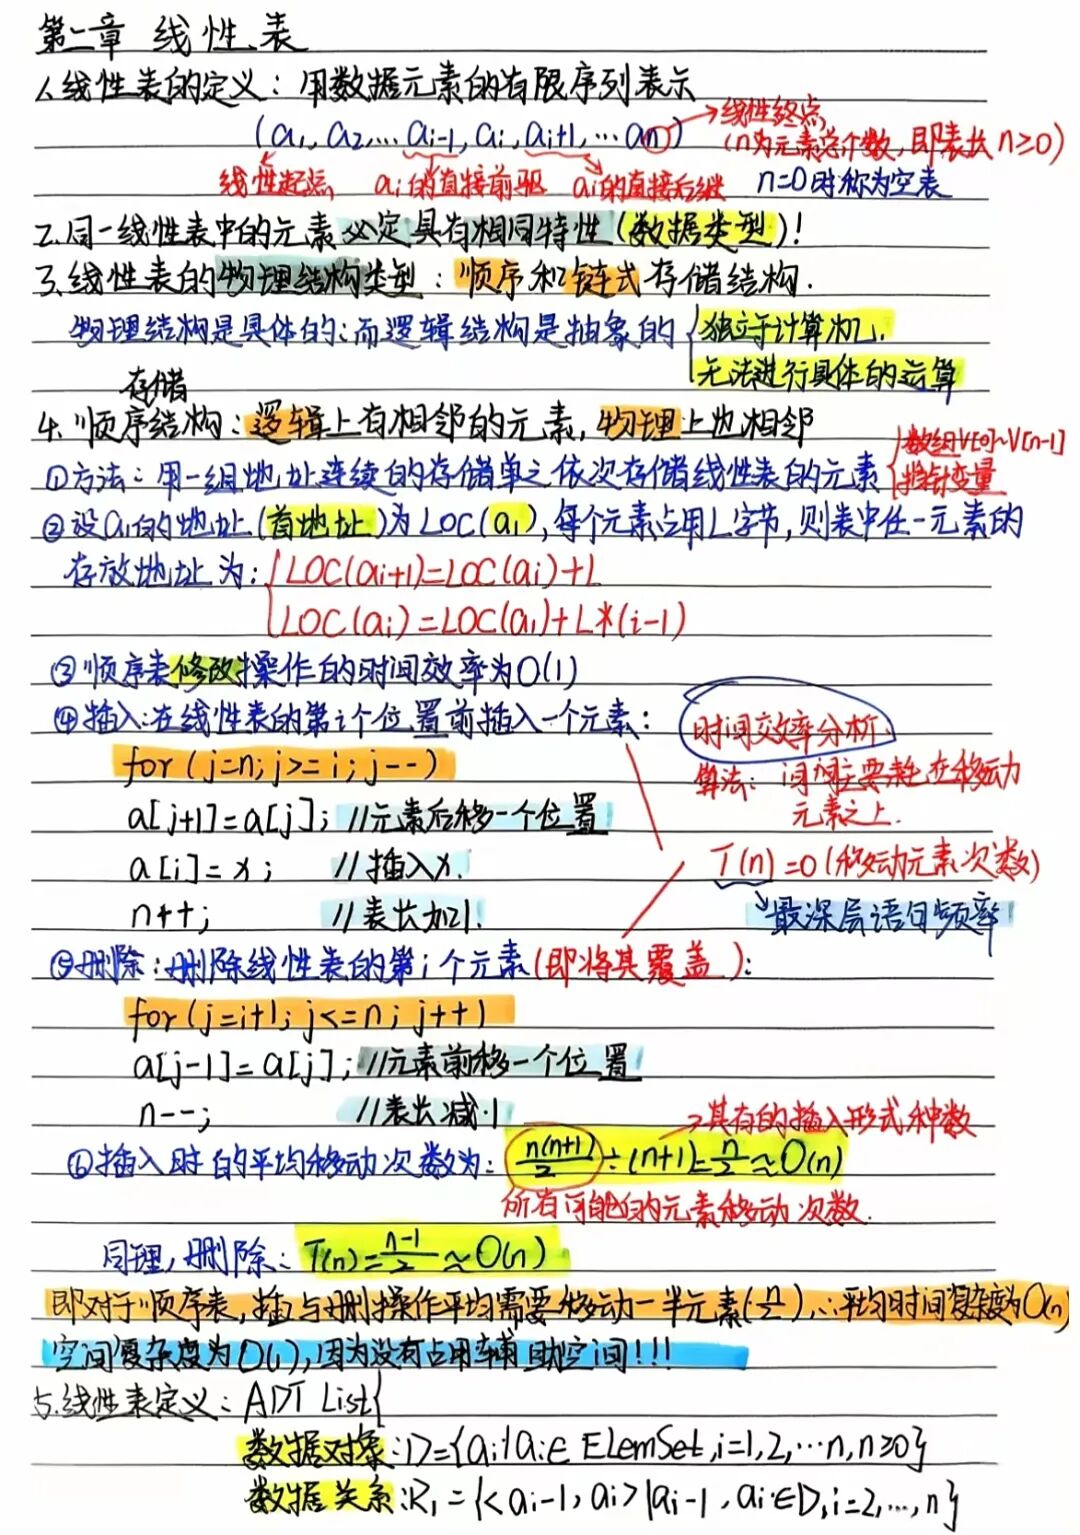 第二章 线性表
1.线性表的定义：用数据元素的有限序列表示
(a1, a2, … ai-1, ai, ai+1, … an)
→线性终点
(n为元素总个数,即表长 n≥0)
线性起点 ai的直接前驱 ai的直接后继 n=0时称为空表
2.同一线性表中的元素必定具有相同特性(数据类型)!
3.线性表的物理结构类型：顺序和链式存储结构.
物理结构是具体的;而逻辑结构是抽象的 { 独立于计算机.
无法进行具体的运算
存储
4.顺序结构：逻辑上有相邻的元素,物理上也相邻
①方法：用一组地址连续的存储单元依次存储线性表的元素 { 数组V[0]~V[n-1]
指针变量
②设a1的地址(首地址)为LOC(a1),每个元素占用L字节,则表中任一元素的
存放地址为: { LOC(ai+1)=LOC(ai)+L
LOC(ai)=LOC(a1)+L*(i-1)
③顺序表修改操作的时间效率为O(1)
④插入:在线性表的第i个位置前插入一个元素：
for(j=n;j>=i;j--)
a[j+1]=a[j]; //元素后移一个位置
a[i]=x; //插入x.
n++; //表长加1.
时间效率分析.
算法:时间主要耗在移动
元素之上.
T(n)=O(移动元素次数)
→最深层语句频率
⑤删除:删除线性表的第i个元素(即将其覆盖):
for(j=i+1;j<=n;j++)
a[j-1]=a[j]; //元素前移一个位置
n--; //表长减1
→具有的插入形式种数
⑥插入时的平均移动次数为: n(n+1)/2÷(n+1)=n/2≈O(n)
所有可能的元素移动次数.
同理,删除: T(n)=n-1/2≈O(n)
即对于顺序表,插与删操作平均需要移动一半元素(n/2),∴平均时间复杂度为O(n)
空间复杂度为O(1),因为没有占用辅助空间!!!
5.线性表定义：ADT List{
数据对象:D={ai|ai∈ElemSet,i=1,2,…n,n≥0}
数据关系:R1={<ai-1,ai>|ai-1,ai∈D,i=2,…,n}